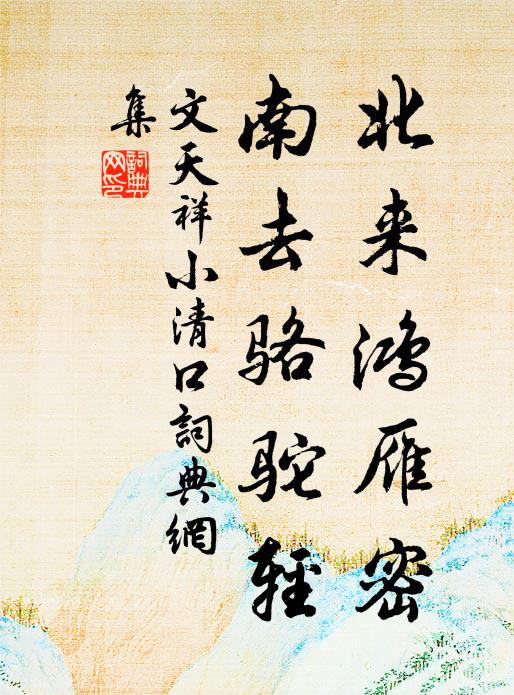 北来鸿雁密
南去骆驼轻
文天祥小清口詞典網
集
詞典網印